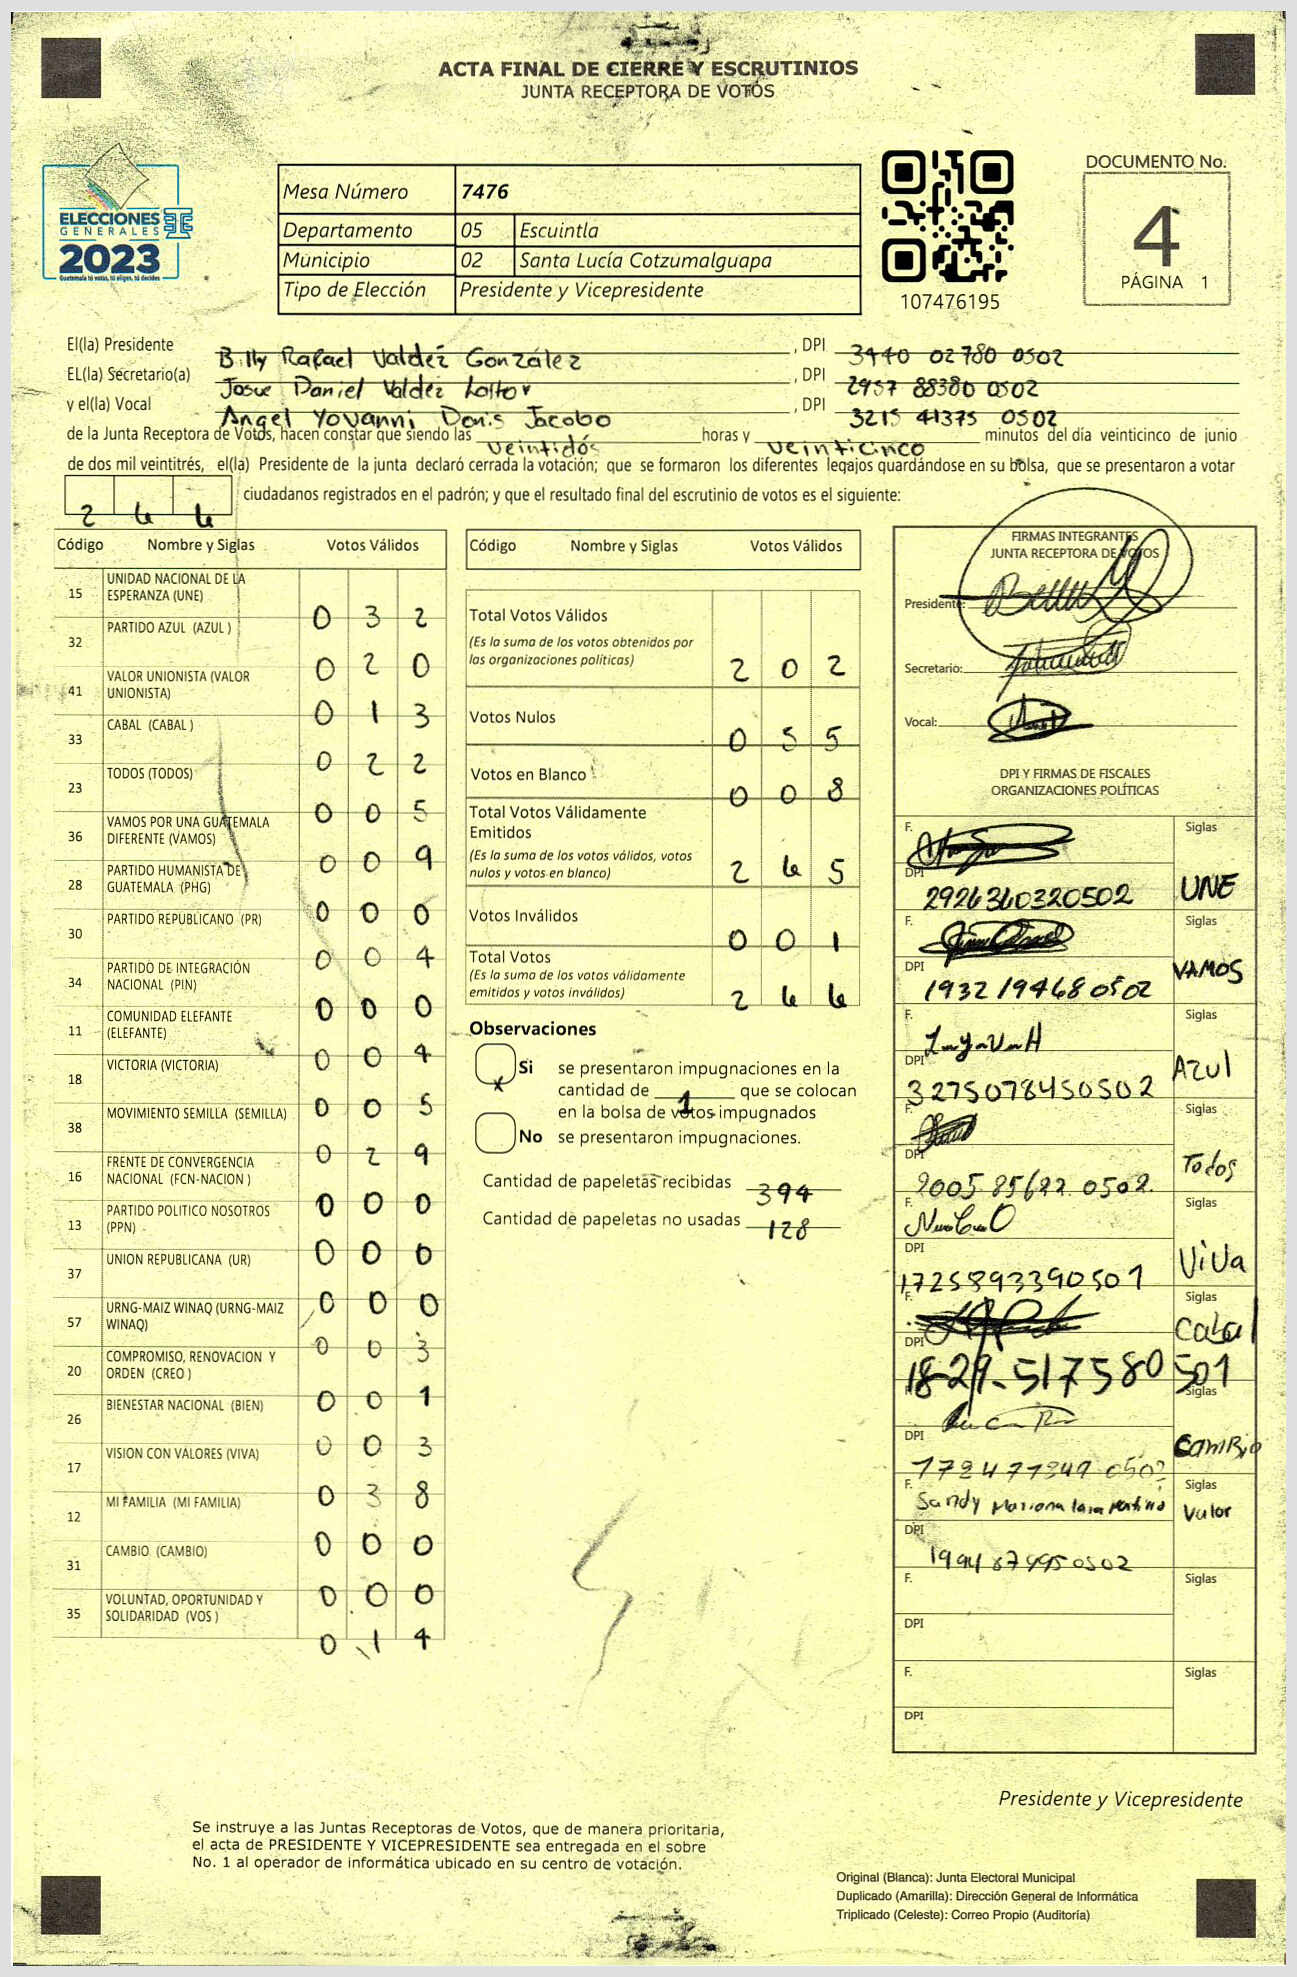 ACTA FINAL DE CIERRE Y ESCRUTINIOS
JUNTA RECEPTORA DE VOTOS
ELECCIONES
GENERALES
2023
Guatemala tú votas, tú eliges, tú decides
Mesa Número 7476
Departamento 05 Escuintla
Municipio 02 Santa Lucía Cotzumalguapa
Tipo de Elección Presidente y Vicepresidente
107476195
DOCUMENTO No.
4
PÁGINA 1
El(la) Presidente Billy Rafael Valdéz González , DPI 3440 02780 0502
EL(la) Secretario(a) Josue Daniel Valdéz , DPI 2957 88380 0502
y el(la) Vocal Angel Yovanni Donis Jacobo , DPI 3215 41375 0502
de la Junta Receptora de Votos, hacen constar que siendo las veintidós horas y veinticinco minutos del día veinticinco de junio
de dos mil veintitrés, el(la) Presidente de la junta declaró cerrada la votación; que se formaron los diferentes legajos guardándose en su bolsa, que se presentaron a votar
2 6 6 ciudadanos registrados en el padrón; y que el resultado final del escrutinio de votos es el siguiente:
Código Nombre y Siglas Votos Válidos
15 UNIDAD NACIONAL DE LA ESPERANZA (UNE) 0 3 2
32 PARTIDO AZUL (AZUL ) 0 2 0
41 VALOR UNIONISTA (VALOR UNIONISTA) 0 1 3
33 CABAL (CABAL ) 0 2 2
23 TODOS (TODOS) 0 0 5
36 VAMOS POR UNA GUATEMALA DIFERENTE (VAMOS) 0 0 9
28 PARTIDO HUMANISTA DE GUATEMALA (PHG) 0 0 0
30 PARTIDO REPUBLICANO (PR) 0 0 4
34 PARTIDO DE INTEGRACIÓN NACIONAL (PIN) 0 0 0
11 COMUNIDAD ELEFANTE (ELEFANTE) 0 0 4
18 VICTORIA (VICTORIA) 0 0 5
38 MOVIMIENTO SEMILLA (SEMILLA) 0 2 9
16 FRENTE DE CONVERGENCIA NACIONAL (FCN-NACION ) 0 0 0
13 PARTIDO POLITICO NOSOTROS (PPN) 0 0 0
37 UNION REPUBLICANA (UR) 0 0 0
57 URNG-MAIZ WINAQ (URNG-MAIZ WINAQ) 0 0 3
20 COMPROMISO, RENOVACION Y ORDEN (CREO ) 0 0 1
26 BIENESTAR NACIONAL (BIEN) 0 0 3
17 VISION CON VALORES (VIVA) 0 3 8
12 MI FAMILIA (MI FAMILIA) 0 0 0
31 CAMBIO (CAMBIO) 0 0 0
35 VOLUNTAD, OPORTUNIDAD Y SOLIDARIDAD (VOS ) 0 1 4
Código Nombre y Siglas Votos Válidos
Total Votos Válidos
(Es la suma de los votos obtenidos por
las organizaciones políticas) 2 0 2
Votos Nulos 0 5 5
Votos en Blanco 0 0 8
Total Votos Válidamente
Emitidos
(Es la suma de los votos válidos, votos
nulos y votos en blanco) 2 6 5
Votos Inválidos 0 0 1
Total Votos
(Es la suma de los votos válidamente
emitidos y votos inválidos) 2 6 6
Observaciones
x Si se presentaron impugnaciones en la
cantidad de 1 que se colocan
en la bolsa de votos impugnados
No se presentaron impugnaciones.
Cantidad de papeletas recibidas 394
Cantidad de papeletas no usadas 128
FIRMAS INTEGRANTES
JUNTA RECEPTORA DE VOTOS
Presidente:
Secretario:
Vocal:
DPI Y FIRMAS DE FISCALES
ORGANIZACIONES POLÍTICAS
F. Siglas
DPI 2926360320502 UNE
F. Siglas
DPI 1932194680502 VAMOS
F. Siglas
DPI 3275078450502 Azul
F. Siglas
DPI 2005 85622 0502 Todos
F. Siglas
DPI 1725893390501 ViVa
F. Siglas
DPI 18-29-517580 501 Cabal
F. Siglas
DPI CAMBio
F. Sandy Siglas
DPI 1994 87995 0502 Valor
F. Siglas
DPI
F. Siglas
DPI
Presidente y Vicepresidente
Se instruye a las Juntas Receptoras de Votos, que de manera prioritaria,
el acta de PRESIDENTE Y VICEPRESIDENTE sea entregada en el sobre
No. 1 al operador de informática ubicado en su centro de votación.
Original (Blanca): Junta Electoral Municipal
Duplicado (Amarilla): Dirección General de Informática
Triplicado (Celeste): Correo Propio (Auditoría)